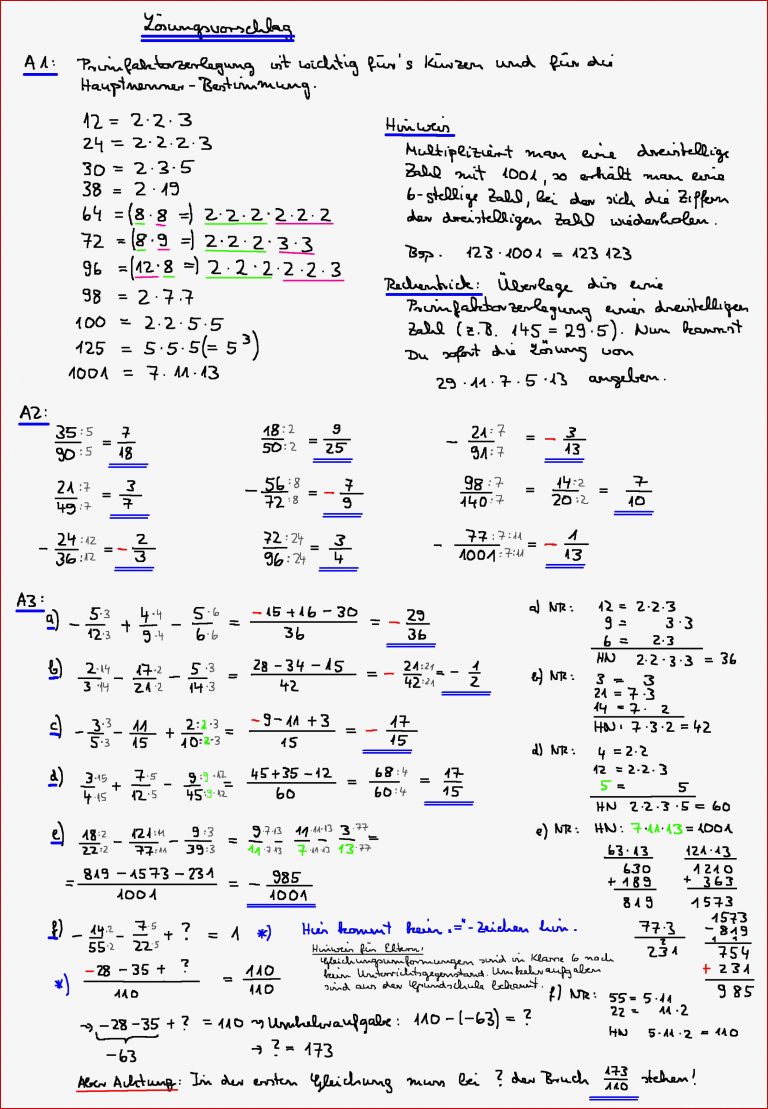 Lösungsvorschlag
A1: Primfaktorzerlegung ist wichtig für's Kürzen und für die
Hauptnenner-Bestimmung.
12 = 2·2·3
24 = 2·2·2·3
30 = 2·3·5
38 = 2·19
64 = (8·8 =) 2·2·2·2·2·2
72 = (8·9 =) 2·2·2·3·3
96 = (12·8 =) 2·2·2·2·2·3
98 = 2·7·7
100 = 2·2·5·5
125 = 5·5·5 (= 5³)
1001 = 7·11·13
Hinweis
Multipliziert man eine dreistellige
Zahl mit 1001, so erhält man eine
6-stellige Zahl, bei der sich die Ziffern
der dreistelligen Zahl wiederholen.
Bsp. 123·1001 = 123 123
Rechentrick: Überlege dir eine
Primfaktorzerlegung einer dreistelligen
Zahl (z.B. 145 = 29·5). Nun kannst
Du sofort die Lösung von
29·11·7·5·13 angeben.
A2:
35:5/90:5 = 7/18
18:2/50:2 = 9/25
- 21:7/91:7 = - 3/13
21:7/49:7 = 3/7
- 56:8/72:8 = - 7/9
98:7/140:7 = 14:2/20:2 = 7/10
- 24:12/36:12 = - 2/3
72:24/96:24 = 3/4
- 77:7:11/1001:7:11 = - 1/13
A3:
a) - 5·3/12·3 + 4·4/9·4 - 5·6/6·6 = -15+16-30/36 = - 29/36
b) 2·14/3·14 - 17·2/21·2 - 5·3/14·3 = 28-34-15/42 = - 21:21/42:21 = - 1/2
c) - 3·3/5·3 - 11/15 + 2:2·3/10:2·3 = -9-11+3/15 = - 17/15
d) 3·15/4·15 + 7·5/12·5 - 9:9·12/45:9·12 = 45+35-12/60 = 68:4/60:4 = 17/15
e) 18:2/22:2 - 121:11/77:11 - 9:3/39:3 = 9·7·13/11·7·13 - 11·11·13/7·11·13 - 3·77/13·77 =
= 819-1573-231/1001 = - 985/1001
f) - 14·2/55·2 - 7·5/22·5 + ? = 1 *) Hier kommt kein "="-Zeichen hin.
Hinweis für Eltern:
Gleichungsumformungen sind in Klasse 6 noch
kein Unterrichtsgegenstand. Umkehraufgaben
sind aus der Grundschule bekannt.
*) -28-35+ ?/110 = 110/110
→ -28-35 + ? = 110 → Umkehraufgabe: 110-(-63) = ?
-63
→ ? = 173
Aber Achtung: In der ersten Gleichung muss bei ? der Bruch 173/110 stehen!
a) NR: 12 = 2·2·3
9 = 3·3
6 = 2·3
HN 2·2·3·3 = 36
b) NR: 3 = 3
21 = 7·3
14 = 7· 2
HN: 7·3·2 = 42
d) NR: 4 = 2·2
12 = 2·2·3
5 = 5
HN 2·2·3·5 = 60
e) NR: HN: 7·11·13 = 1001
63·13
630
+189
819
121·13
1210
+ 363
1573
77·3
2
231
1573
-819
1 1
754
+ 231
985
f) NR: 55 = 5·11
22 = 11·2
HN 5·11·2 = 110